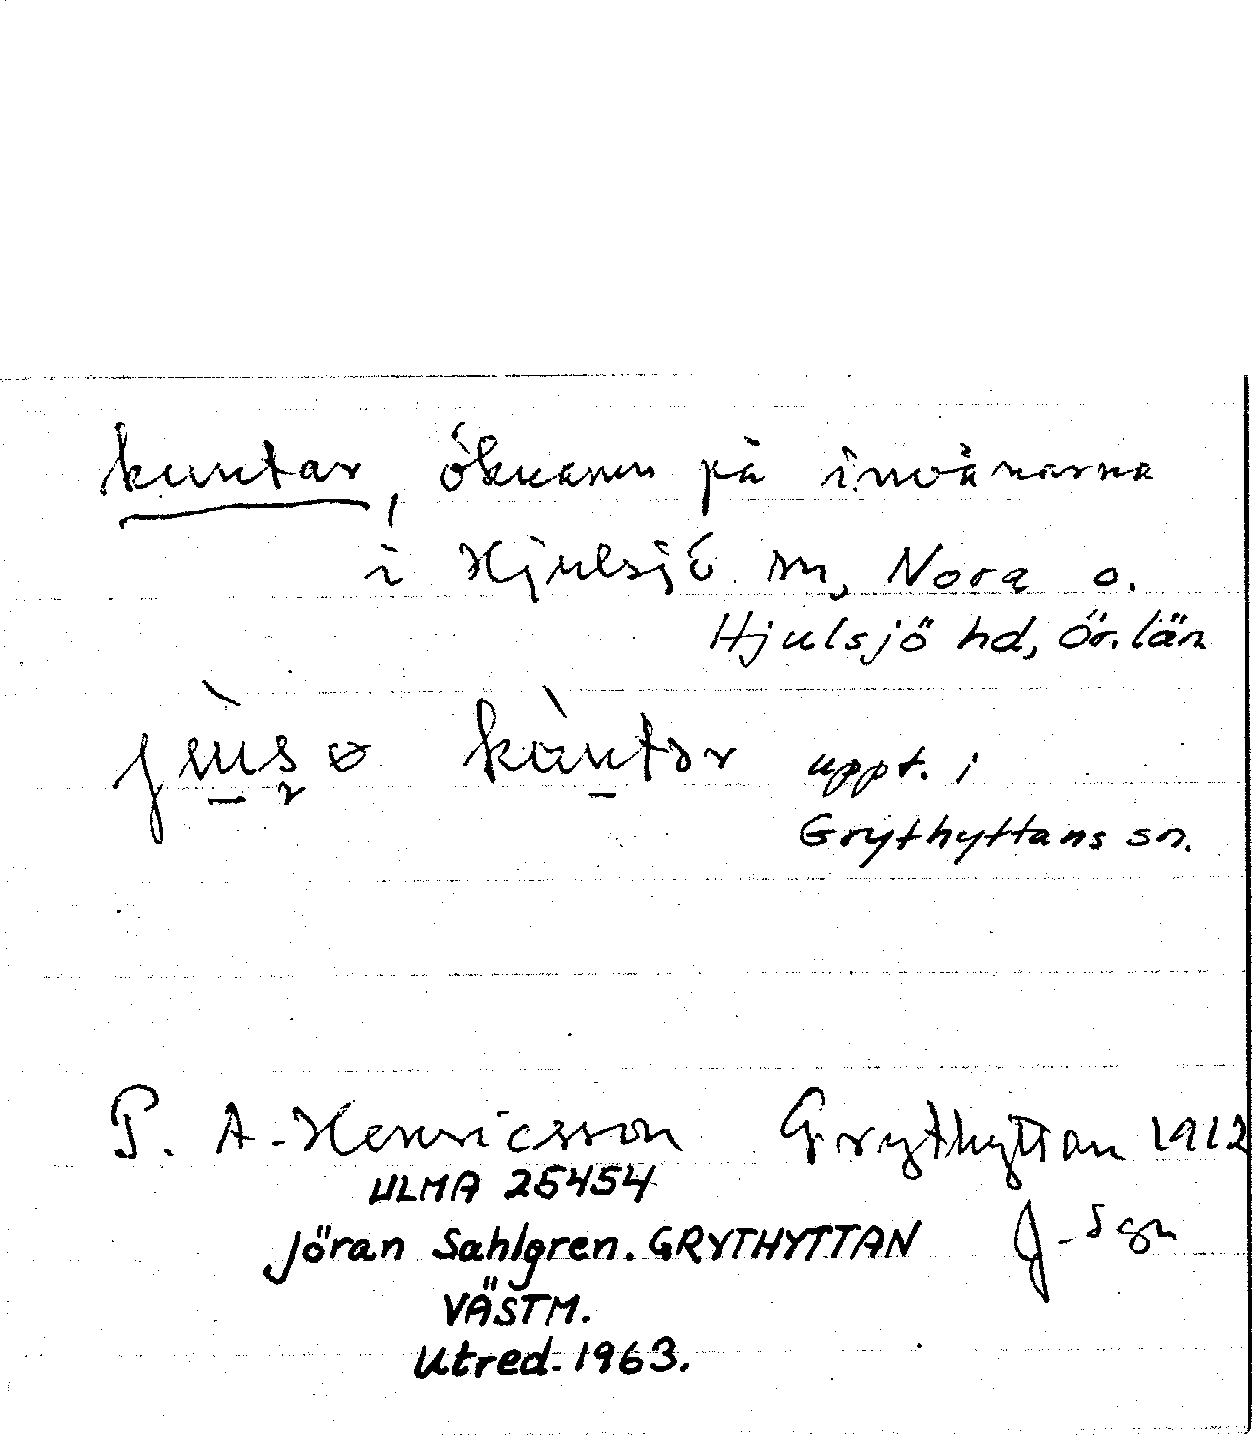 kuntar, öknamn på invånarna
i Hjulsjö sn, Nora o.
Hjulsjö hd, Ör. län
uppt. i
Grythyttans sn.
P. A. Henricsson Grythyttan 1912
ULMA 25454
J. Sgn
Jöran Sahlgren. GRYTHYTTAN
VÄSTM.
Utred. 1963.